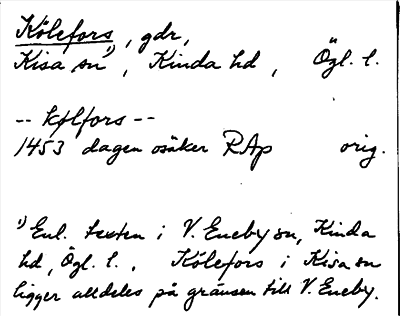 Kölefors, gdr,
Kisa sn¹⁾, Kinda hd, Ögl. l.
-- kølfors --
1453 dagen osäker RAp orig.
¹⁾ Enl. texten i V. Eneby sn, Kinda
hd, Ögl. l. . Kölefors i Kisa sn
ligger alldeles på gränsen till V. Eneby.